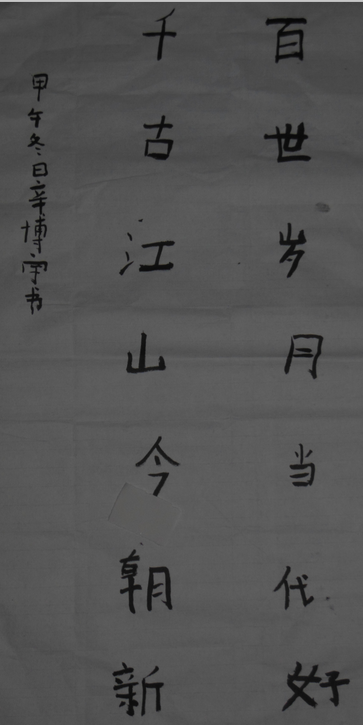 百世岁月当代好
千古江山今朝新
甲午冬日辛博宇书